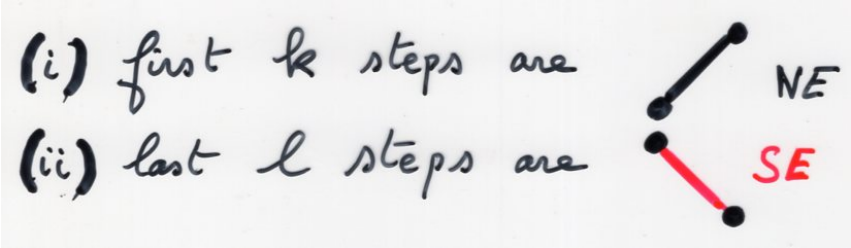 (i) first k steps are NE
(ii) last l steps are SE